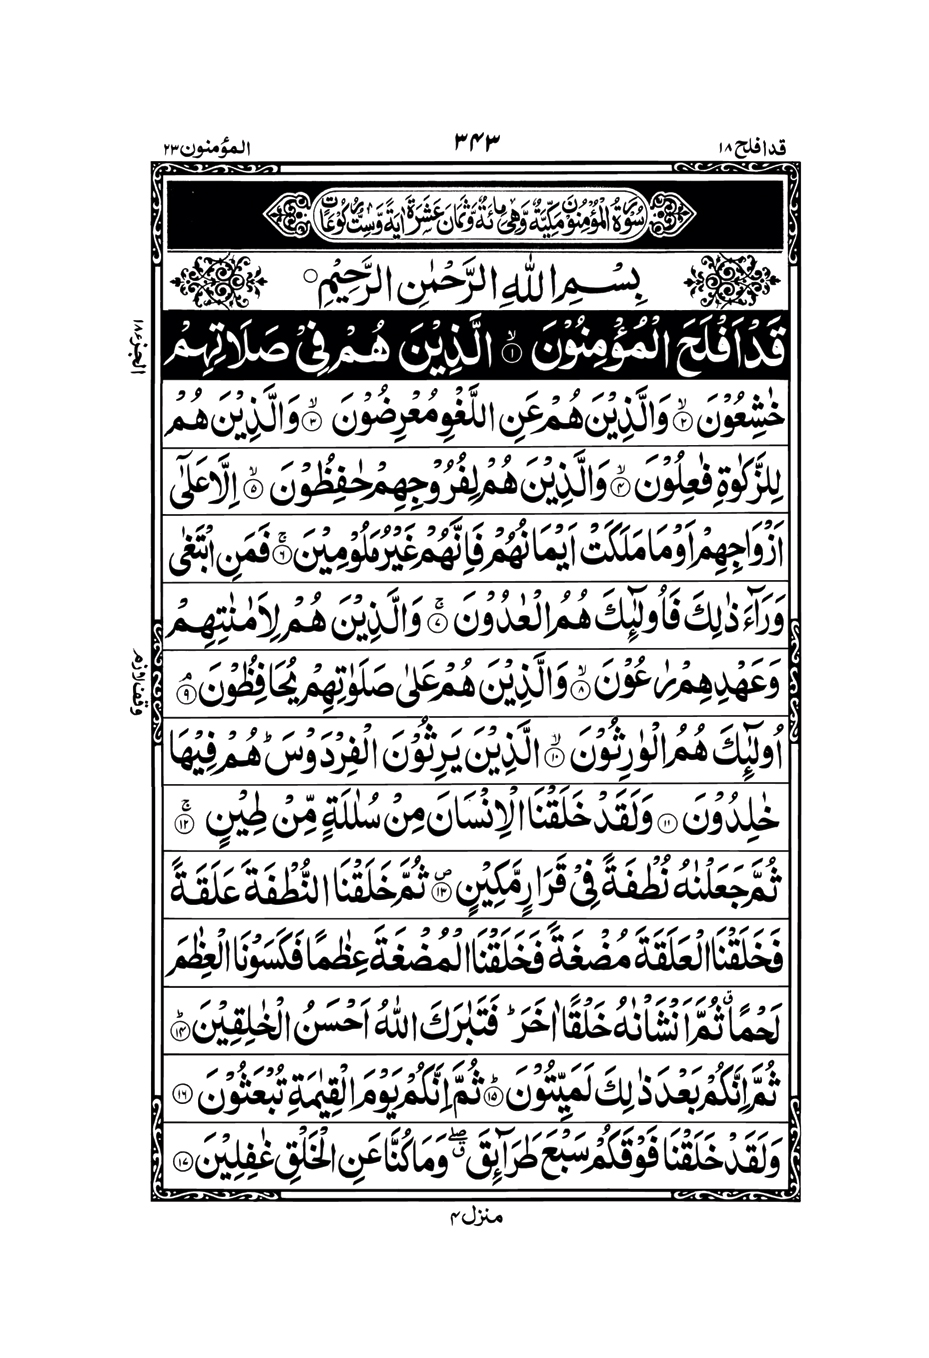 قد افلح ١٨
٣٤٣
المؤمنون ٢٣
سُوْرَةُ الْمُؤْمِنُوْنَ مَكِّيَّةٌ وَّهِىَ مِائَةٌ وَّثَمَانَ عَشَرَةَ اٰيَةً وَّسِتُّ رُكُوْعَاتٍ
بِسْمِ اللّٰهِ الرَّحْمٰنِ الرَّحِيْمِ ○
قَدْ اَفْلَحَ الْمُؤْمِنُوْنَ ۙ‏﴿۱﴾ الَّذِيْنَ هُمْ فِىْ صَلَاتِهِمْ
خٰشِعُوْنَ ۙ‏﴿۲﴾ وَالَّذِيْنَ هُمْ عَنِ اللَّغْوِ مُعْرِضُوْنَ ۙ‏﴿۳﴾ وَالَّذِيْنَ هُمْ
لِلزَّكٰوةِ فٰعِلُوْنَ ۙ‏﴿۴﴾ وَالَّذِيْنَ هُمْ لِفُرُوْجِهِمْ حٰفِظُوْنَ ۙ‏﴿۵﴾ اِلَّا عَلٰٓى
اَزْوَاجِهِمْ اَوْ مَا مَلَكَتْ اَيْمَانُهُمْ فَاِنَّهُمْ غَيْرُ مَلُوْمِيْنَ ۚ‏﴿۶﴾ فَمَنِ ابْتَغٰى
وَرَآءَ ذٰلِكَ فَاُولٰٓئِكَ هُمُ الْعٰدُوْنَ ۚ‏﴿۷﴾ وَالَّذِيْنَ هُمْ لِاَمٰنٰتِهِمْ
وَعَهْدِهِمْ رٰعُوْنَ ۙ‏﴿۸﴾ وَالَّذِيْنَ هُمْ عَلٰى صَلَوٰتِهِمْ يُحَافِظُوْنَ ۘ‏﴿۹﴾
اُولٰٓئِكَ هُمُ الْوٰرِثُوْنَ ۙ‏﴿۱۰﴾ الَّذِيْنَ يَرِثُوْنَ الْفِرْدَوْسَ ؕ هُمْ فِيْهَا
خٰلِدُوْنَ ﴿۱۱﴾ وَلَقَدْ خَلَقْنَا الْاِنْسَانَ مِنْ سُلٰلَةٍ مِّنْ طِيْنٍ ۚ‏﴿۱۲﴾
ثُمَّ جَعَلْنٰهُ نُطْفَةً فِىْ قَرَارٍ مَّكِيْنٍ ۖ‏﴿۱۳﴾ ثُمَّ خَلَقْنَا النُّطْفَةَ عَلَقَةً
فَخَلَقْنَا الْعَلَقَةَ مُضْغَةً فَخَلَقْنَا الْمُضْغَةَ عِظٰمًا فَكَسَوْنَا الْعِظٰمَ
لَحْمًا ۗ ثُمَّ اَنْشَاْنٰهُ خَلْقًا اٰخَرَ ؕ فَتَبٰرَكَ اللّٰهُ اَحْسَنُ الْخٰلِقِيْنَ ؕ‏﴿۱۴﴾
ثُمَّ اِنَّكُمْ بَعْدَ ذٰلِكَ لَمَيِّتُوْنَ ؕ‏﴿۱۵﴾ ثُمَّ اِنَّكُمْ يَوْمَ الْقِيٰمَةِ تُبْعَثُوْنَ ﴿۱۶﴾
وَلَقَدْ خَلَقْنَا فَوْقَكُمْ سَبْعَ طَرَآئِقَ ۖ ق وَمَا كُنَّا عَنِ الْخَلْقِ غٰفِلِيْنَ ﴿۱۷﴾
الجزء ١٨
وقف لازم
منزل ۴